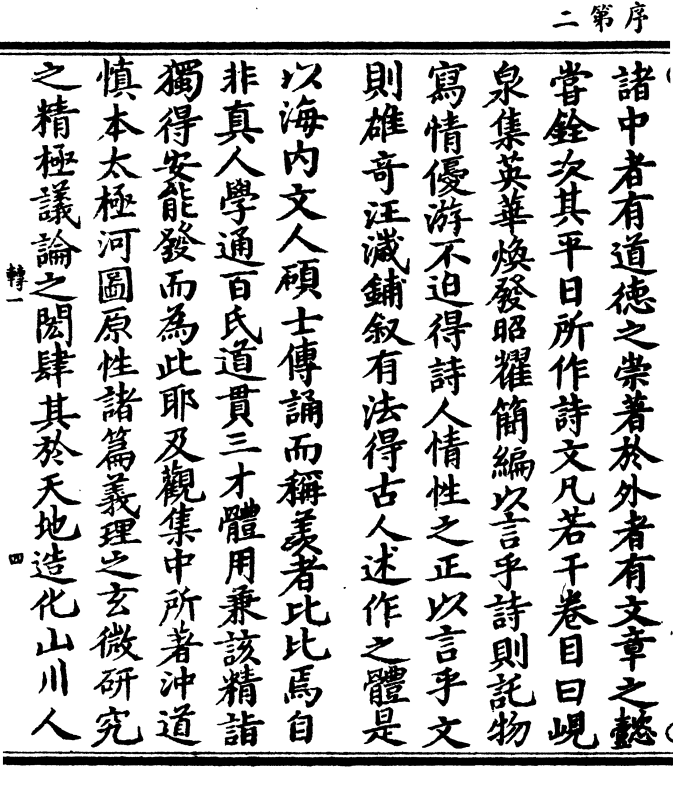 序第二
諸中者有道德之崇著於外者有文章之懿
嘗銓次其平日所作詩文凡若干卷目曰峴
泉集英華煥發昭耀簡編以言乎詩則託物
寫情優游不迫得詩人情性之正以言乎文
則雄竒汪濊鋪叙有法得古人述作之體是
以海内文人碩士傳誦而稱羨者比比焉自
非真人學通百氏道貫三才體用兼該精詣
獨得安能發而為此耶及觀集中所著沖道
慎本太極河圖原性諸篇義理之玄微研究
之精極議論之閎肆其於天地造化山川人
轉一
四